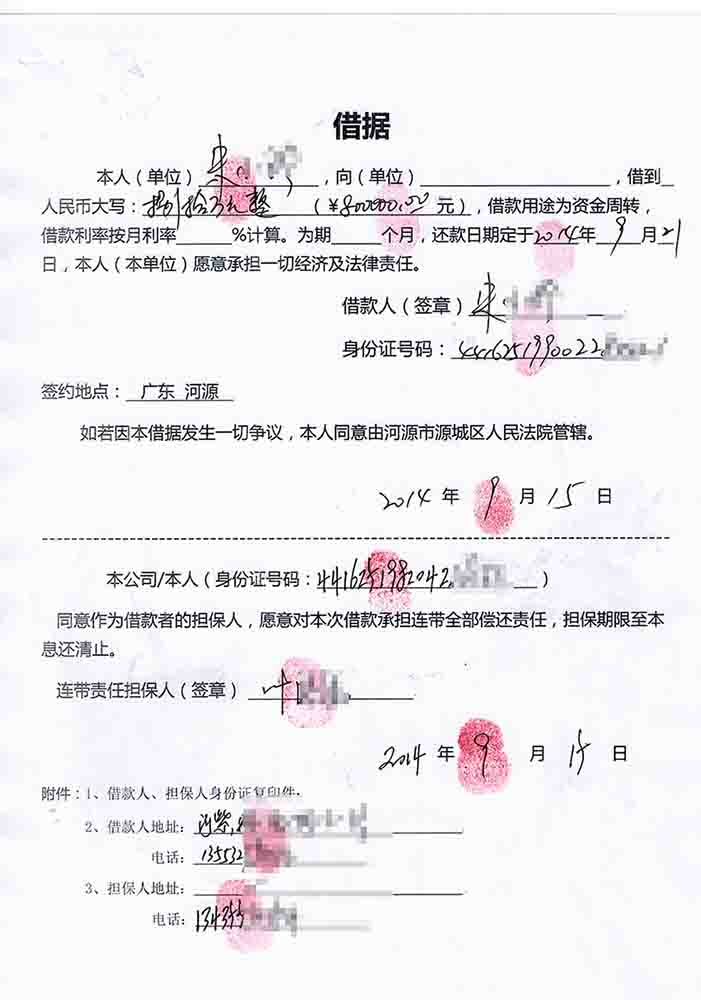 借据
本人（单位）朱，向（单位），借到
人民币大写：捌拾万元整（￥800000.00元），借款用途为资金周转，
借款利率按月利率 %计算。为期 个月，还款日期定于2014年9月21
日，本人（本单位）愿意承担一切经济及法律责任。
借款人（签章）朱
身份证号码：4416251990022
签约地点：广东 河源
如若因本借据发生一切争议，本人同意由河源市源城区人民法院管辖。
2014年9月15日
本公司/本人（身份证号码：4416251982042）
同意作为借款者的担保人，愿意对本次借款承担连带全部偿还责任，担保期限至本
息还清止。
连带责任担保人（签章）叶
2014年9月15日
附件：1、借款人、担保人身份证复印件.
2、借款人地址：
电话：135532
3、担保人地址：
电话：